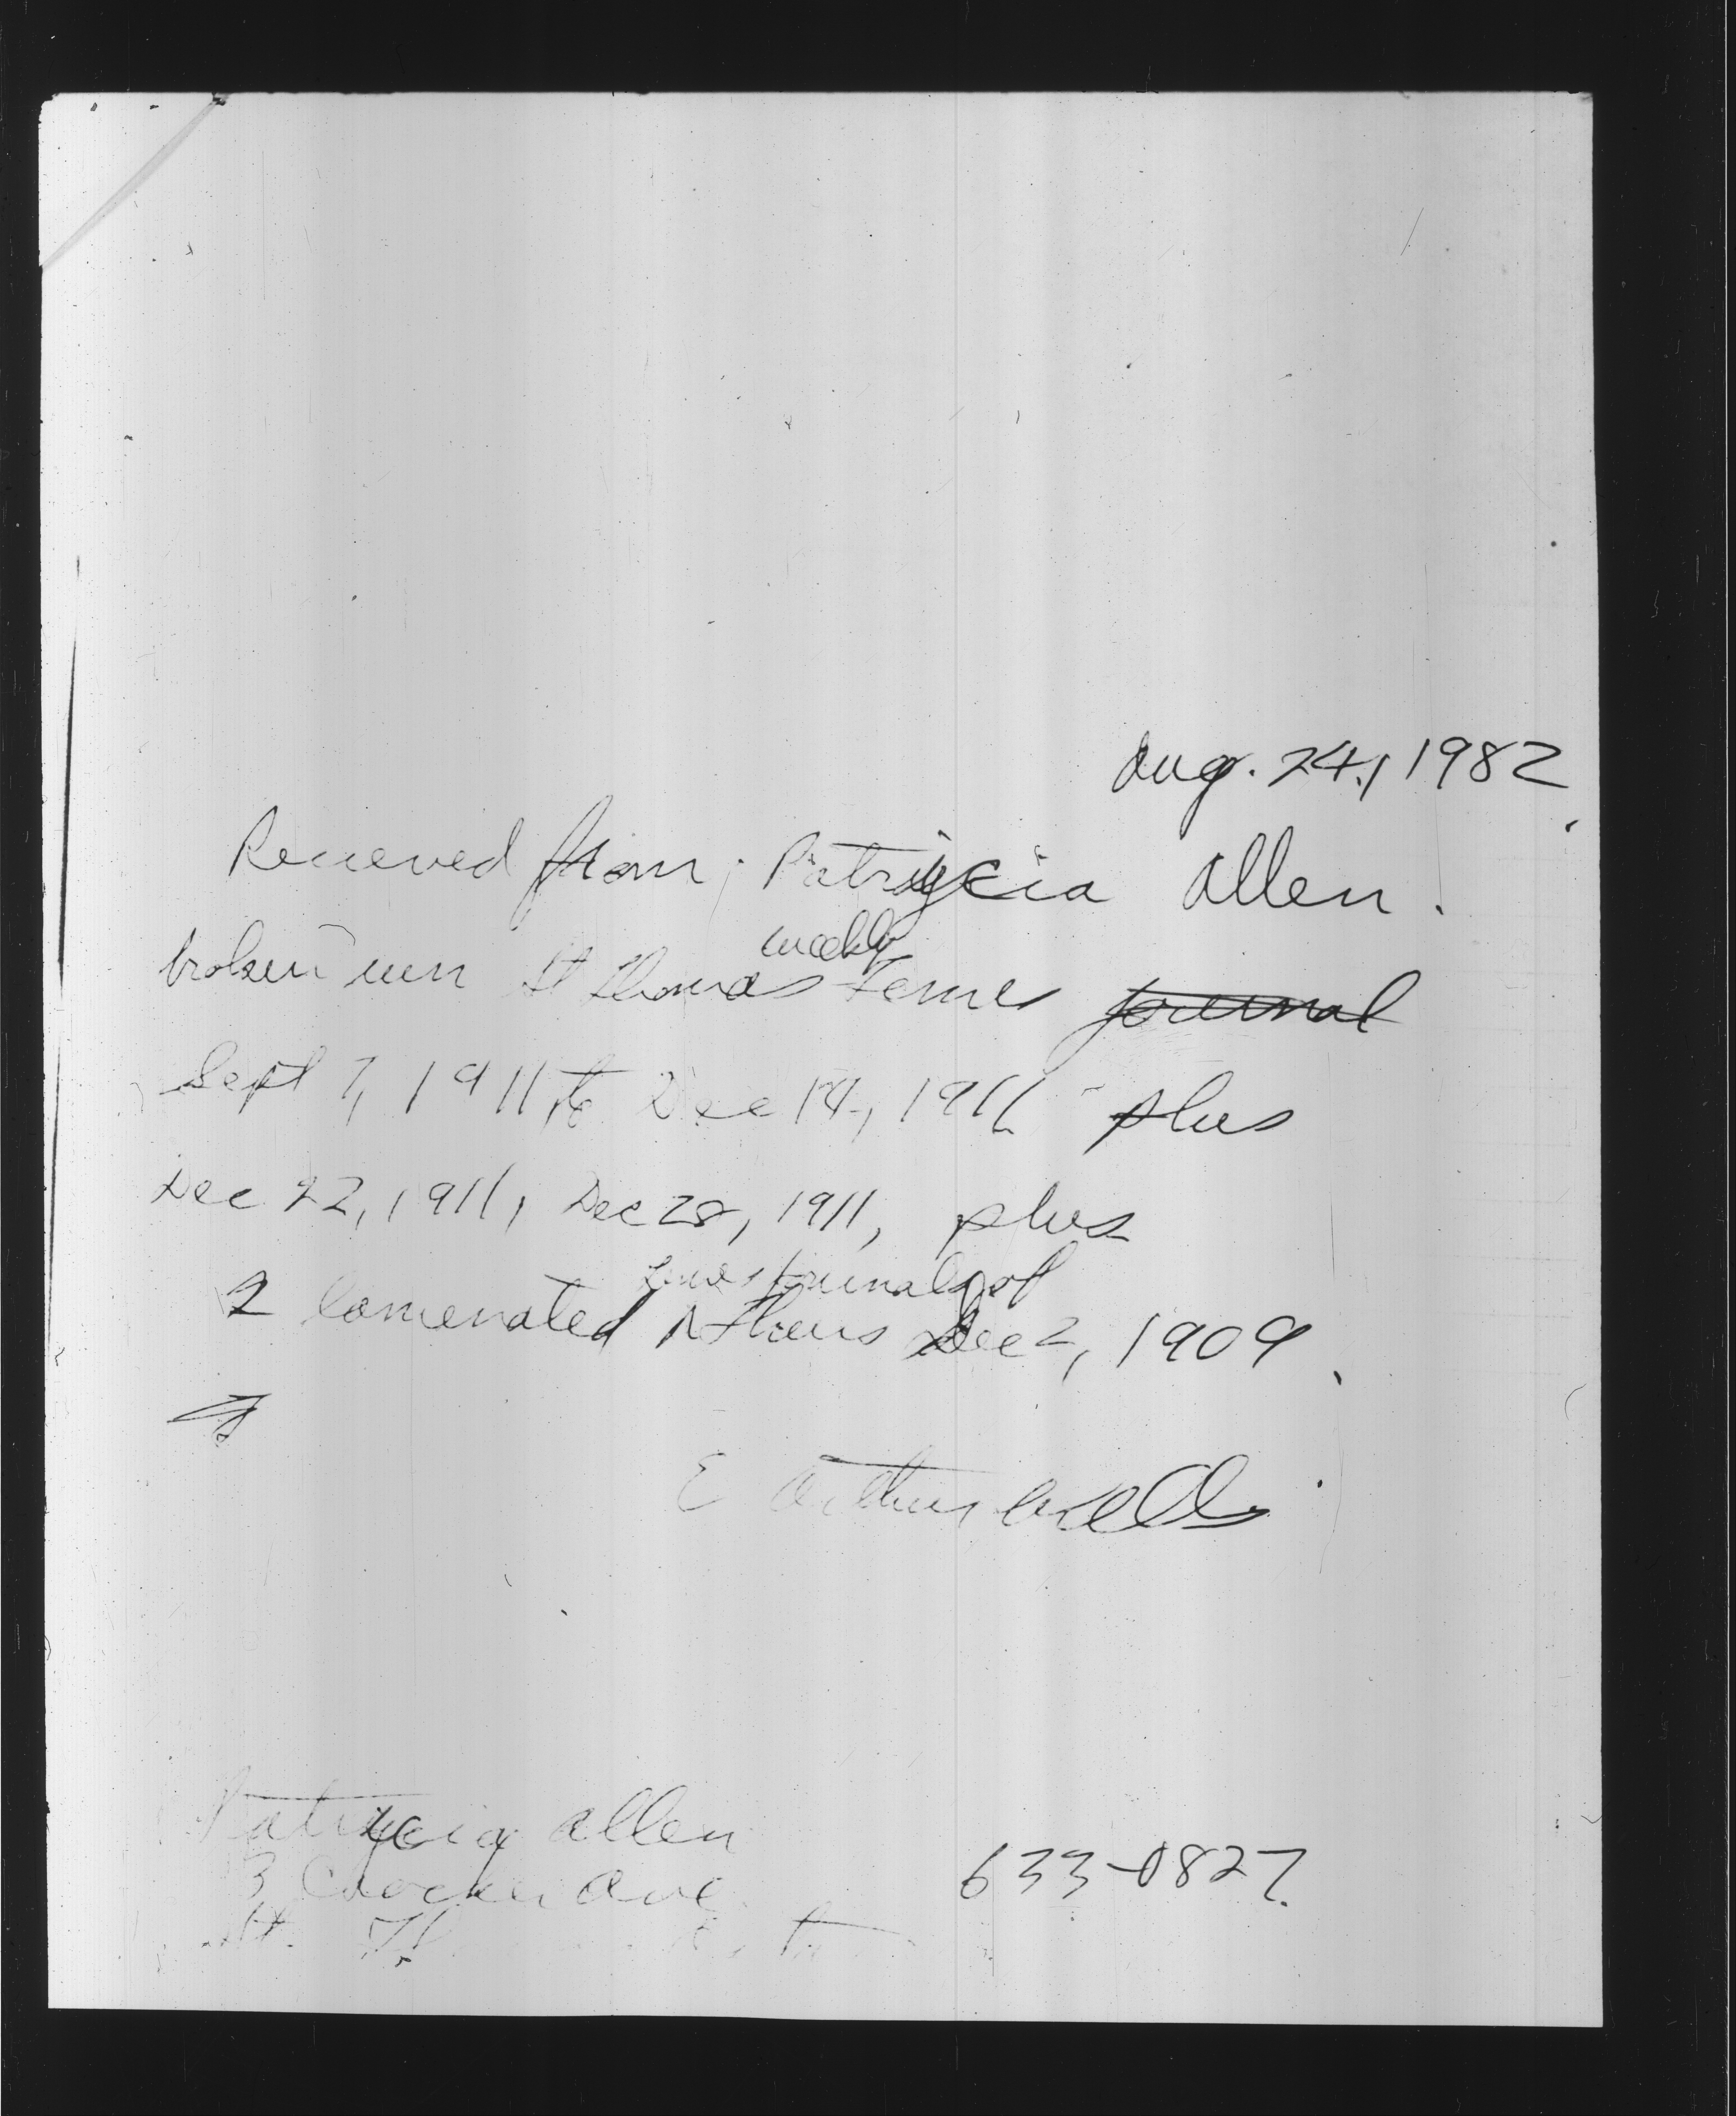 Aug. 24, 1982
Received from: Patrycia Allen.
weekly
broken run St Thomas Times journal
Sept 7, 1911 to Dec 14, 1911 plus
Dec 22, 1911, Dec 28, 1911, plus
journals of
2 lamenated Athens Dec 2, 1909
E Arthur Wells
Patrycia Allen
3 Crocker Ave 633-0827
St. Th